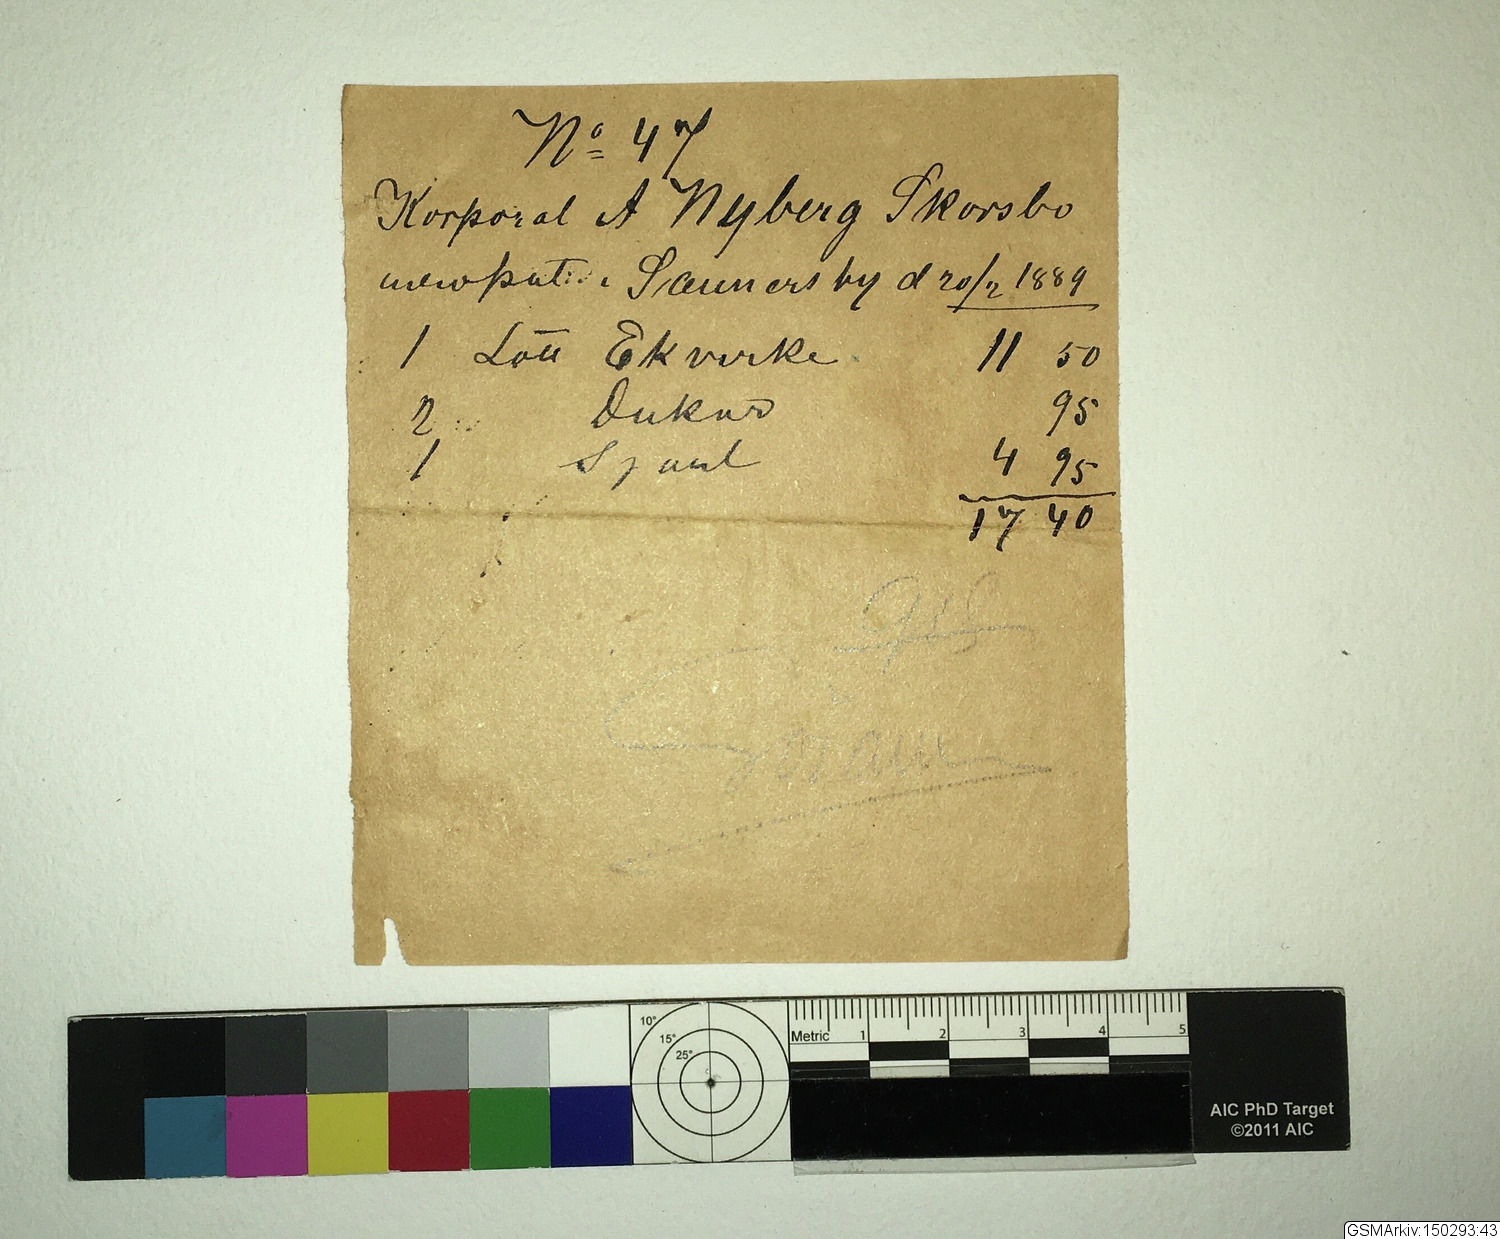 No 47
Korporal A Nyberg Skorsbo
Sannersby d 20/2 1889
1 Lott Ekvirke 11 50
2 Dukar 95
1 4 95
17 40
10°
15°
25°
Metric 1 2 3 4 5
AIC PhD Target
©2011 AIC
GSMArkiv:150293:43